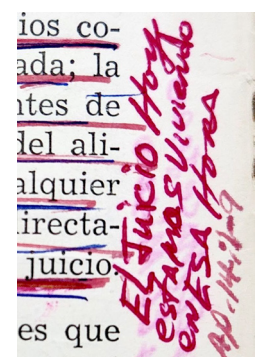 ios co-
ada; la
ntes de
del ali-
alquier
irecta-
juicio
es que
El Juicio Hoy
estamos Viviendo
en ESA Hora
Ap. 14:7-9